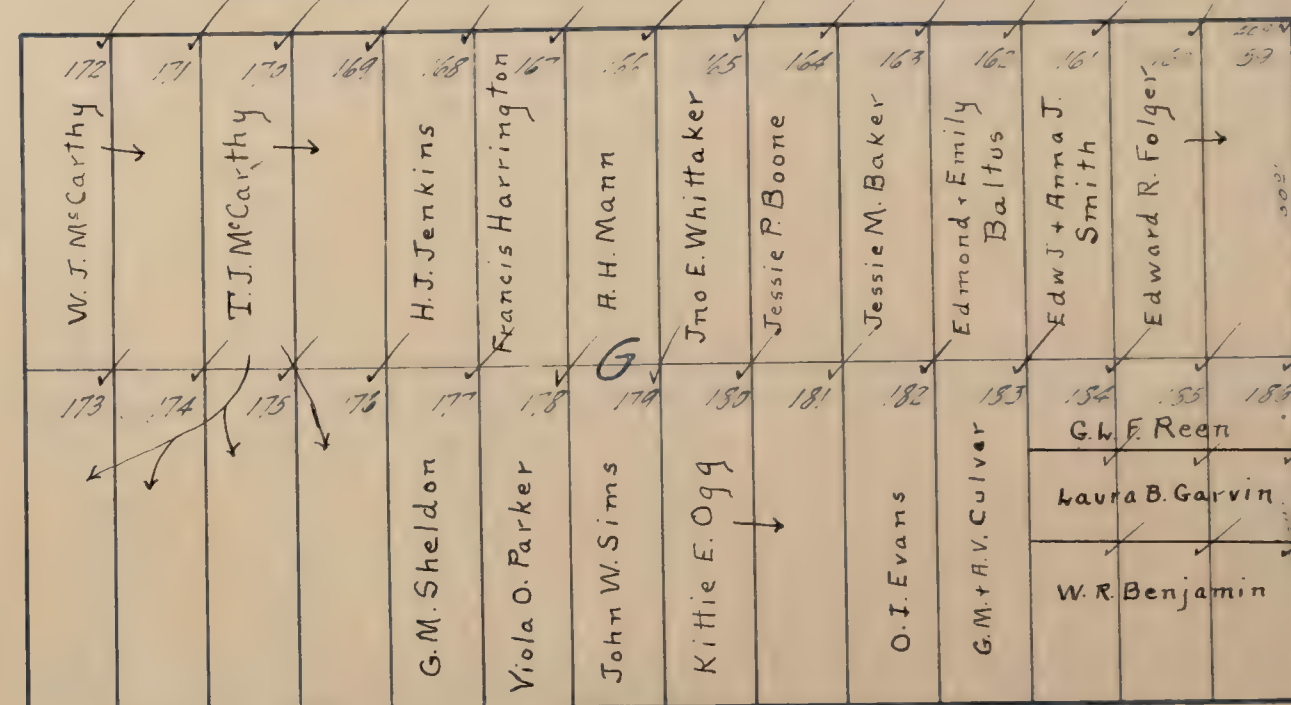 172 171 170 169 168 167 166 165 164 163 162 161 59
W. J. McCarthy
T. J. McCarthy
H. J. Jenkins
Francis Harrington
A. H. Mann
Jno E. Whittaker
Jessie P. Boone
Jessie M. Baker
Edmond + Emily
Baltus
Edw J + Anna J.
Smith
Edward R. Folger
G
173 174 175 176 177 178 179 180 181 182 183 184 185 186
G. M. Sheldon
Viola O. Parker
John W. Sims
Kittie E. Ogg
O. I. Evans
G. M. + A. V. Culver
G. L. F. Reen
Laura B. Garvin
W. R. Benjamin